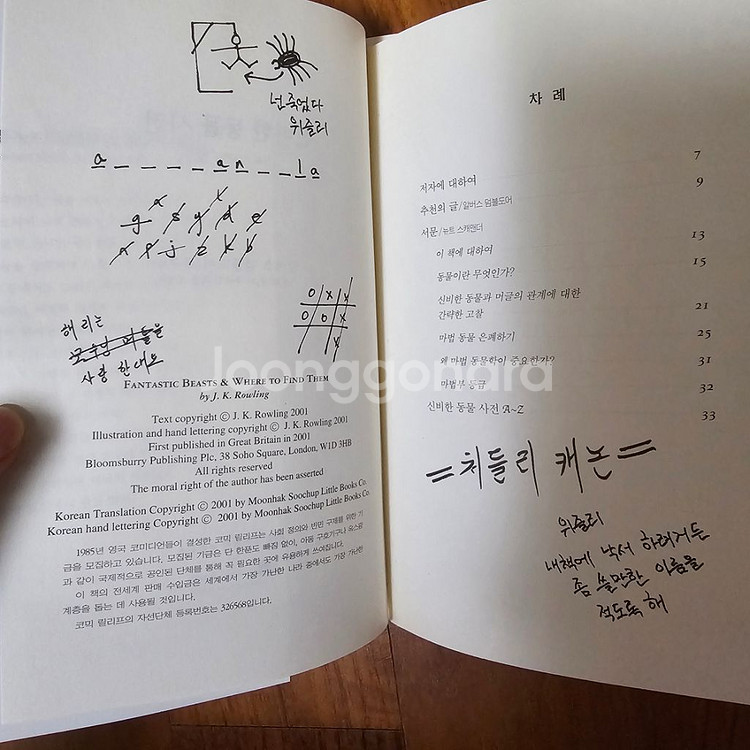 넌 죽었다
위즐리
a _ _ _ _ an _ _ la
해리는
사랑한대요
FANTASTIC BEASTS & WHERE TO FIND THEM
by J. K. Rowling
Text copyright © J. K. Rowling 2001
Illustration and hand lettering copyright © J. K. Rowling 2001
First published in Great Britain in 2001
Bloomsburry Publishing Plc, 38 Soho Square, London, W1D 3HB
All rights reserved
The moral right of the author has been asserted
Korean Translation Copyright © 2001 by Moonhak Soochup Little Books Co.
Korean hand lettering Copyright © 2001 by Moonhak Soochup Little Books Co.
1985년 영국 코미디언들이 결성한 코믹 릴리프는 사회 정의와 빈민 구제를 위한 기
금을 모집하고 있습니다. 모집된 기금은 단 한푼도 빠짐 없이, 아동 구호기구나 옥스팜
과 같이 국제적으로 공인된 단체를 통해 꼭 필요한 곳에 유용하게 쓰여집니다.
이 책의 전세계 판매 수입금은 세계에서 가장 가난한 나라 중에서도 가장 가난한
계층을 돕는 데 사용될 것입니다.
코믹 릴리프의 자선단체 등록번호는 326568입니다.
joonggonara
차 례
7
저자에 대하여 9
추천의 글/알버스 덤블도어
서문/뉴트 스캐맨더 13
이 책에 대하여 15
동물이란 무엇인가?
신비한 동물과 머글의 관계에 대한
간략한 고찰 21
마법 동물 은폐하기 25
왜 마법 동물학이 중요한가? 31
마법부 등급 32
신비한 동물 사전 A~Z 33
=처들리 캐논=
위즐리
내책에 낙서 하려거든
좀 쓸만한 이름을
적도록 해